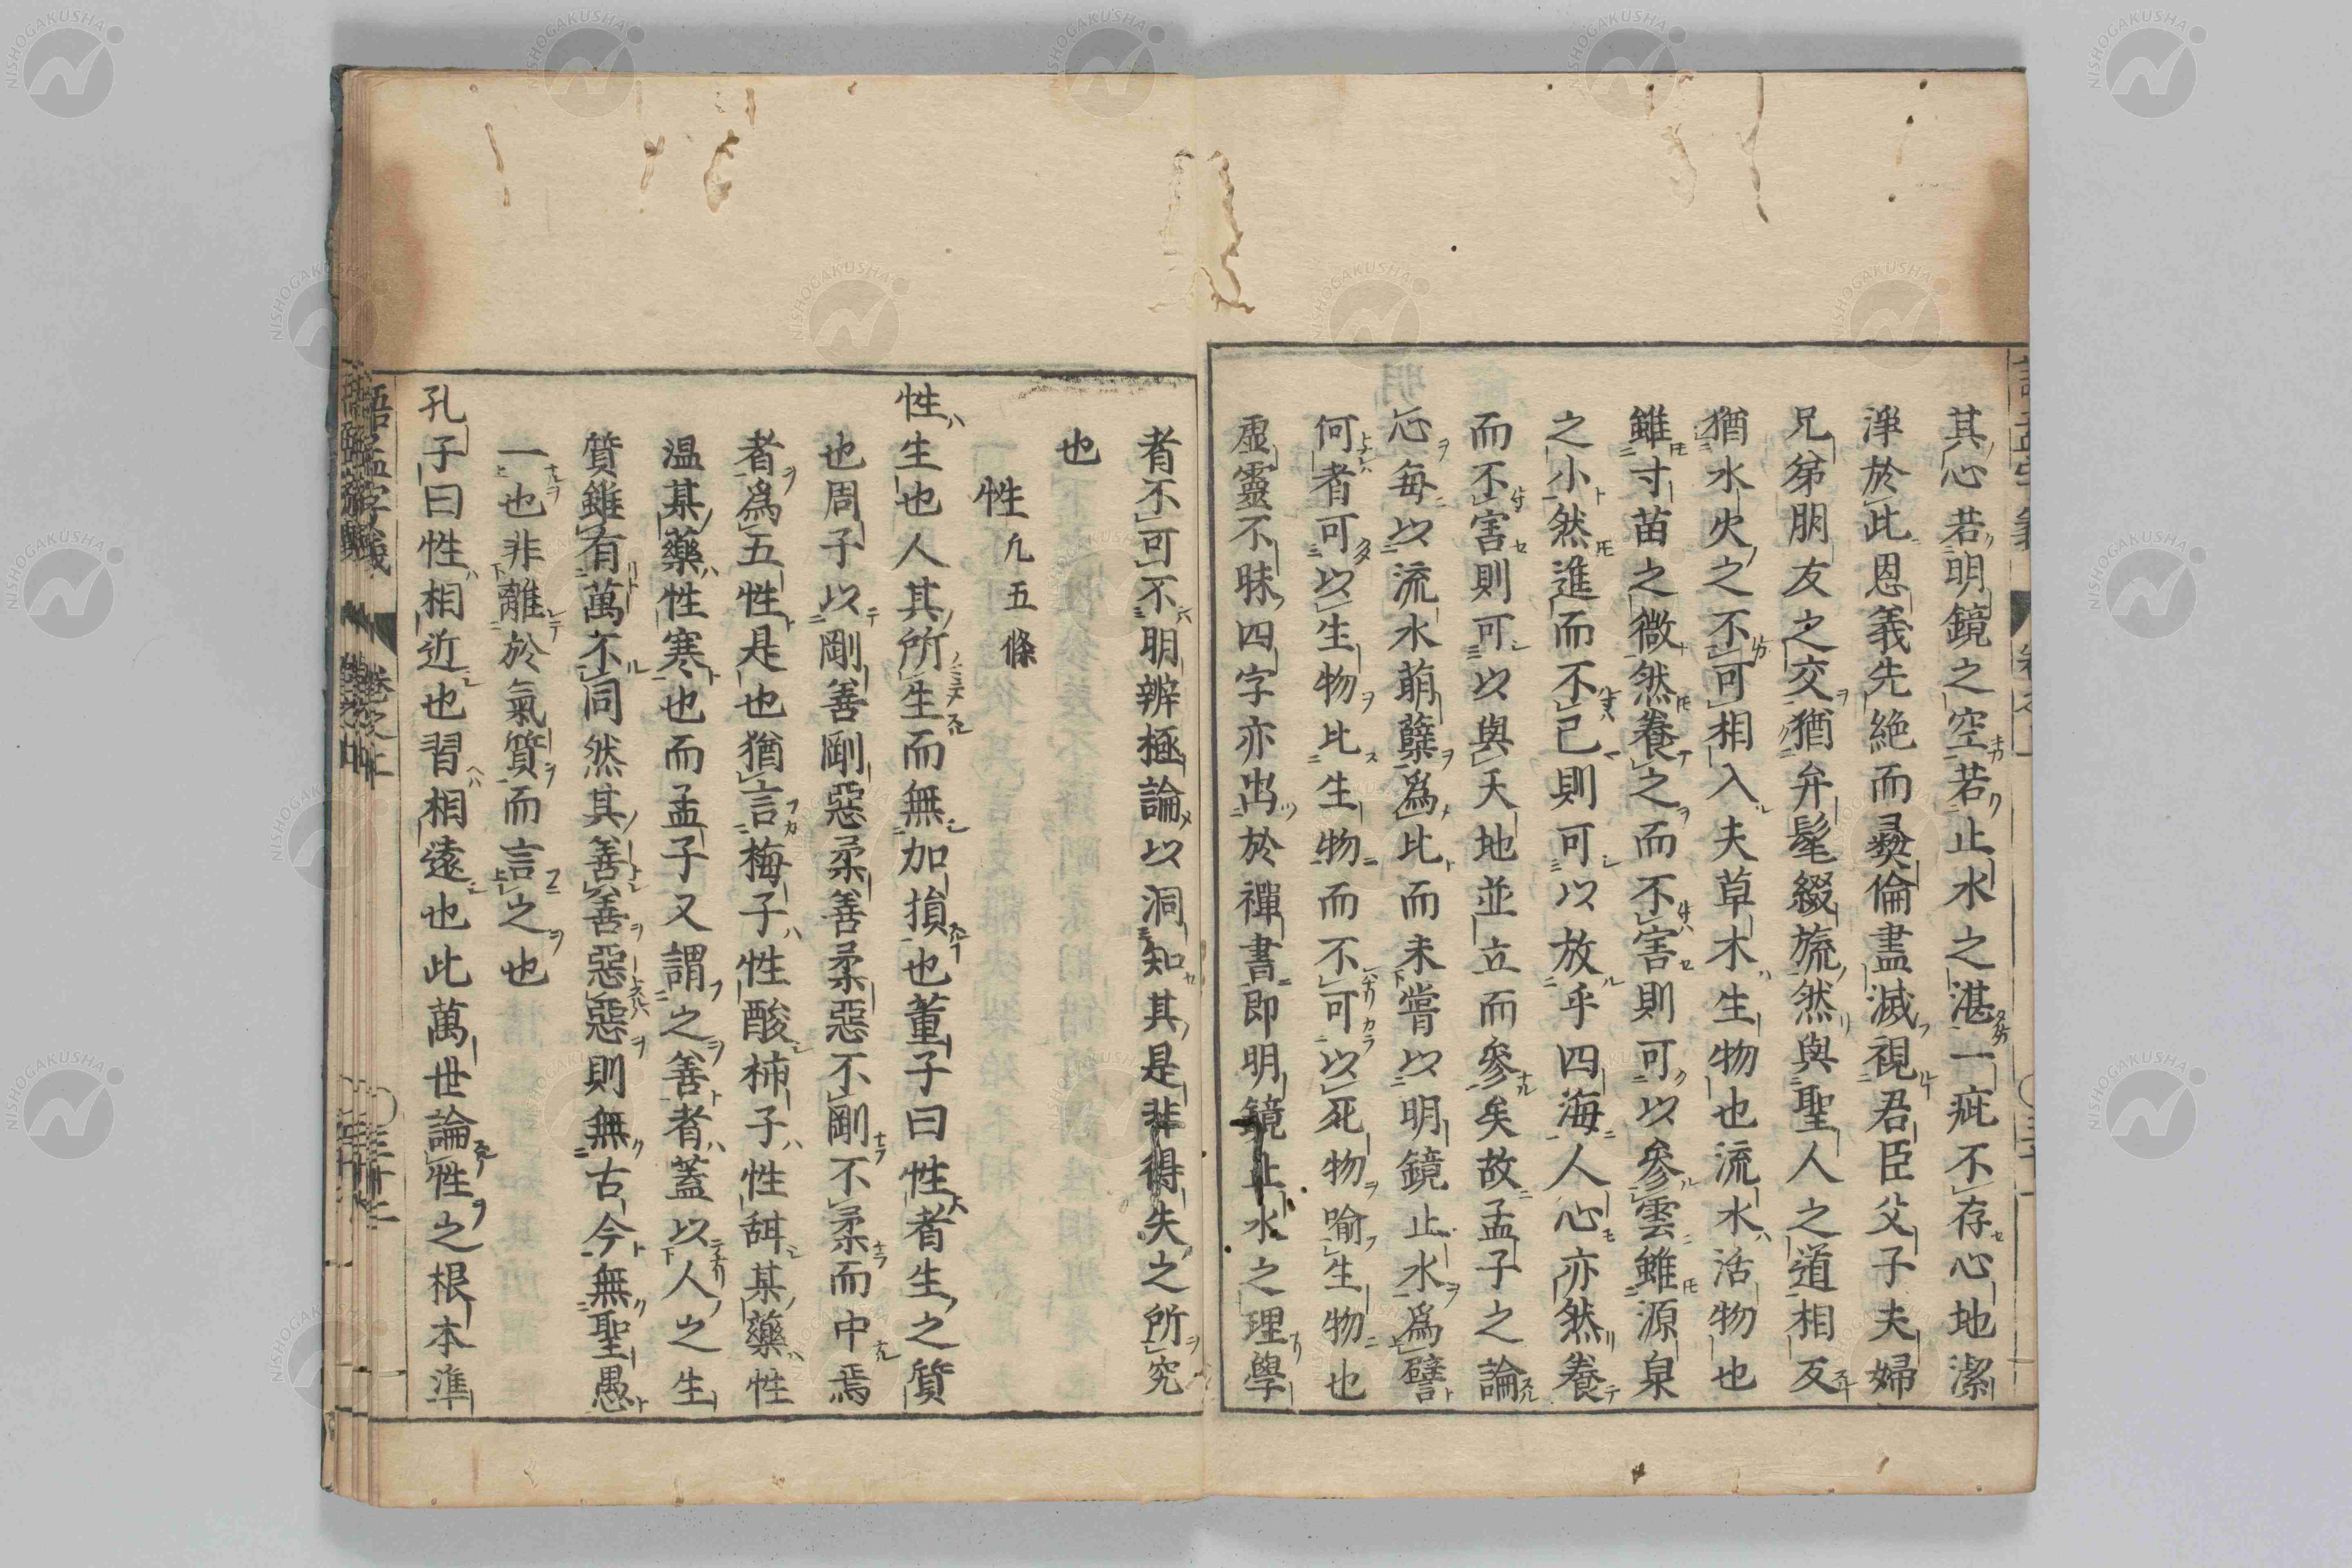 其心若明鏡之空若止水之湛一疵不存心地潔
淨於此恩義先絶而彛倫盡滅視君臣父子夫婦
兄弟朋友之交猶弁髦綴旒然與聖人之道相反
猶水火之不可相入夫草木生物也流水活物也
雖寸苗之微然養之而不害則可以參雲雖源泉
之小然進而不已則可以放乎四海人心亦然養
而不害則可以與天地並立而參矣故孟子之論
心毎以流水萠蘖爲比而未嘗以明鏡止水爲譬
何者可以生物比生物而不可以死物喻生物也
虛靈不昧四字亦出於禪書即明鏡止水之理學
者不可不明辨極論以洞知其是非得失之所究
也
性 凡五條
性生也人其所生而無加損也董子曰性者生之質
也周子以剛善剛惡柔善柔惡不剛不柔而中焉
者爲五性是也猶言梅子性酸柿子性甜某藥性
温某藥性寒也而孟子又謂之善者蓋以人之生
質雖有萬不同然其善善惡惡則無古今無聖愚
一也非離於氣質而言之也
孔子曰性相近也習相遠也此萬世論性之根本準
語孟字義 卷之上
NISHOGAKUSHA